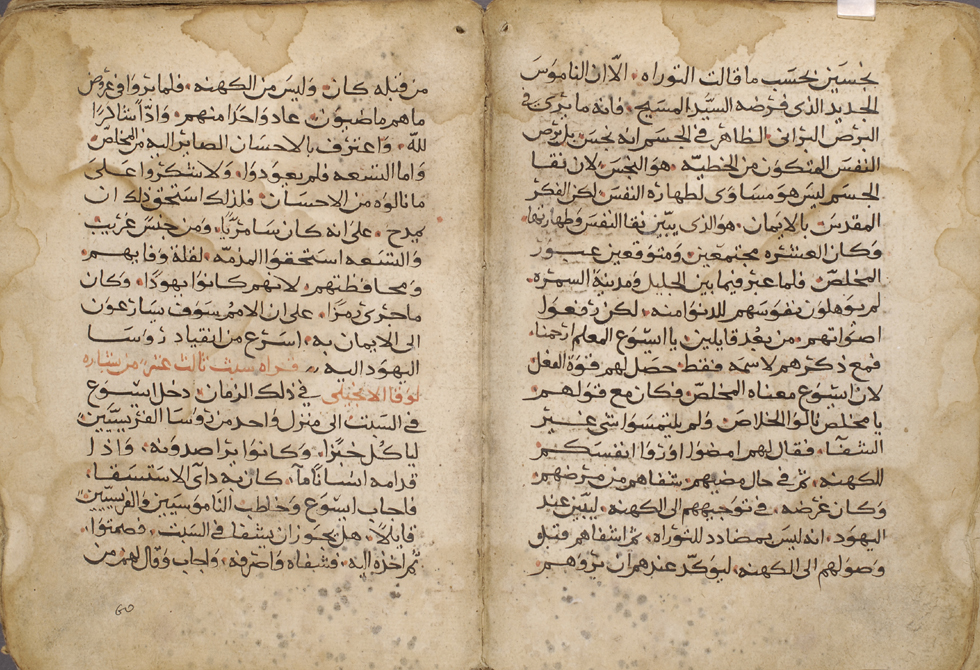 بجسين بحسب ما قالت التوراه. الا ان الناموس
الجديد الذى فرضه السيد المسيح. فانه ما يرى فى
البرص البرانى الظاهر فى الجسم انه نجس بل برص
النفس المتكون من الخطيه. هو النجس لان نقا
الجسم ليس هو مساوى لطهاره النفس لكن الفكر
المقدس بالايمان. هو الذى يبين نقا النفس وطهارتها
وكان العشره مجتمعين. ومتوقعين عبور
المخلص. فلما عبر فيما بين الجليل ومدينة السمره.
لم يوهلون نفوسهم للدنوا منه. لكن رفعوا
اصواتهم. من بعد قايلين. يا ايسوع المعلم ارحمنا.
فمع ذكرهم لاسمه فقط حصل لهم قوة الفعل
لان ايسوع معناه المخلص فكان مع قولهم
يا مخلص نالوا الخلاص. ولم يلتمسوا شى غير
الشفآ. فقال لهم امضوا اوروا انفسكم
للكهنه. ثم فى حال مضيهم. شفاهم من مرضهم
وكان غرضه. فى توجيههم الى الكهنه. ليبين عند
اليهود. انه ليس بمضادد للتوراه. ثم اشفاهم قبل
وصولهم الى الكهنه. ليوكد عندهم ان بروهم
من قبله كان. وليس من الكهنه. فلما بروا فى عروض
ما هم ماضيون. عاد واحدًا منهم. وادّا شاكرًا
لله. واعترف بالاحسان الصاير اليه من المخلص
واما التسعه فلم يعودوا. ولا شكروا على
ما نالوه من الاحسان. فلذلك استحق ذلك ان
يمدح. على انه كان سامريًا. ومن جنس غريب
والتسعه استحقوا المذمه. لقلة وفايهم.
ومحافظتهم. لانهم كانوا يهودًا. وكان
ما جرى رمزًا. على ان الامم سوف يسارعون
الى الايمان به. اسرع من انقياد روسا
اليهود اليه. قراه سبت ثالث عشر من بشاره
لوقا الانجيلى فى ذلك الزمان. دخل ايسوع
فى السبت الى منزل واحد من روسا الفريسيين
لياكل خبزًا. وكانوا يراصدونه. واذا
قدامه انسانًا مآ. كان به دآى الاستسقا.
فاجاب ايسوع وخاطب الناموسيين والفريسيين
قايلًا. هل يجوز ان يشفا فى السبت. فصمتوا.
ثم اخذه اليه. وشفاه واصرفه. واجاب وقال لهم من